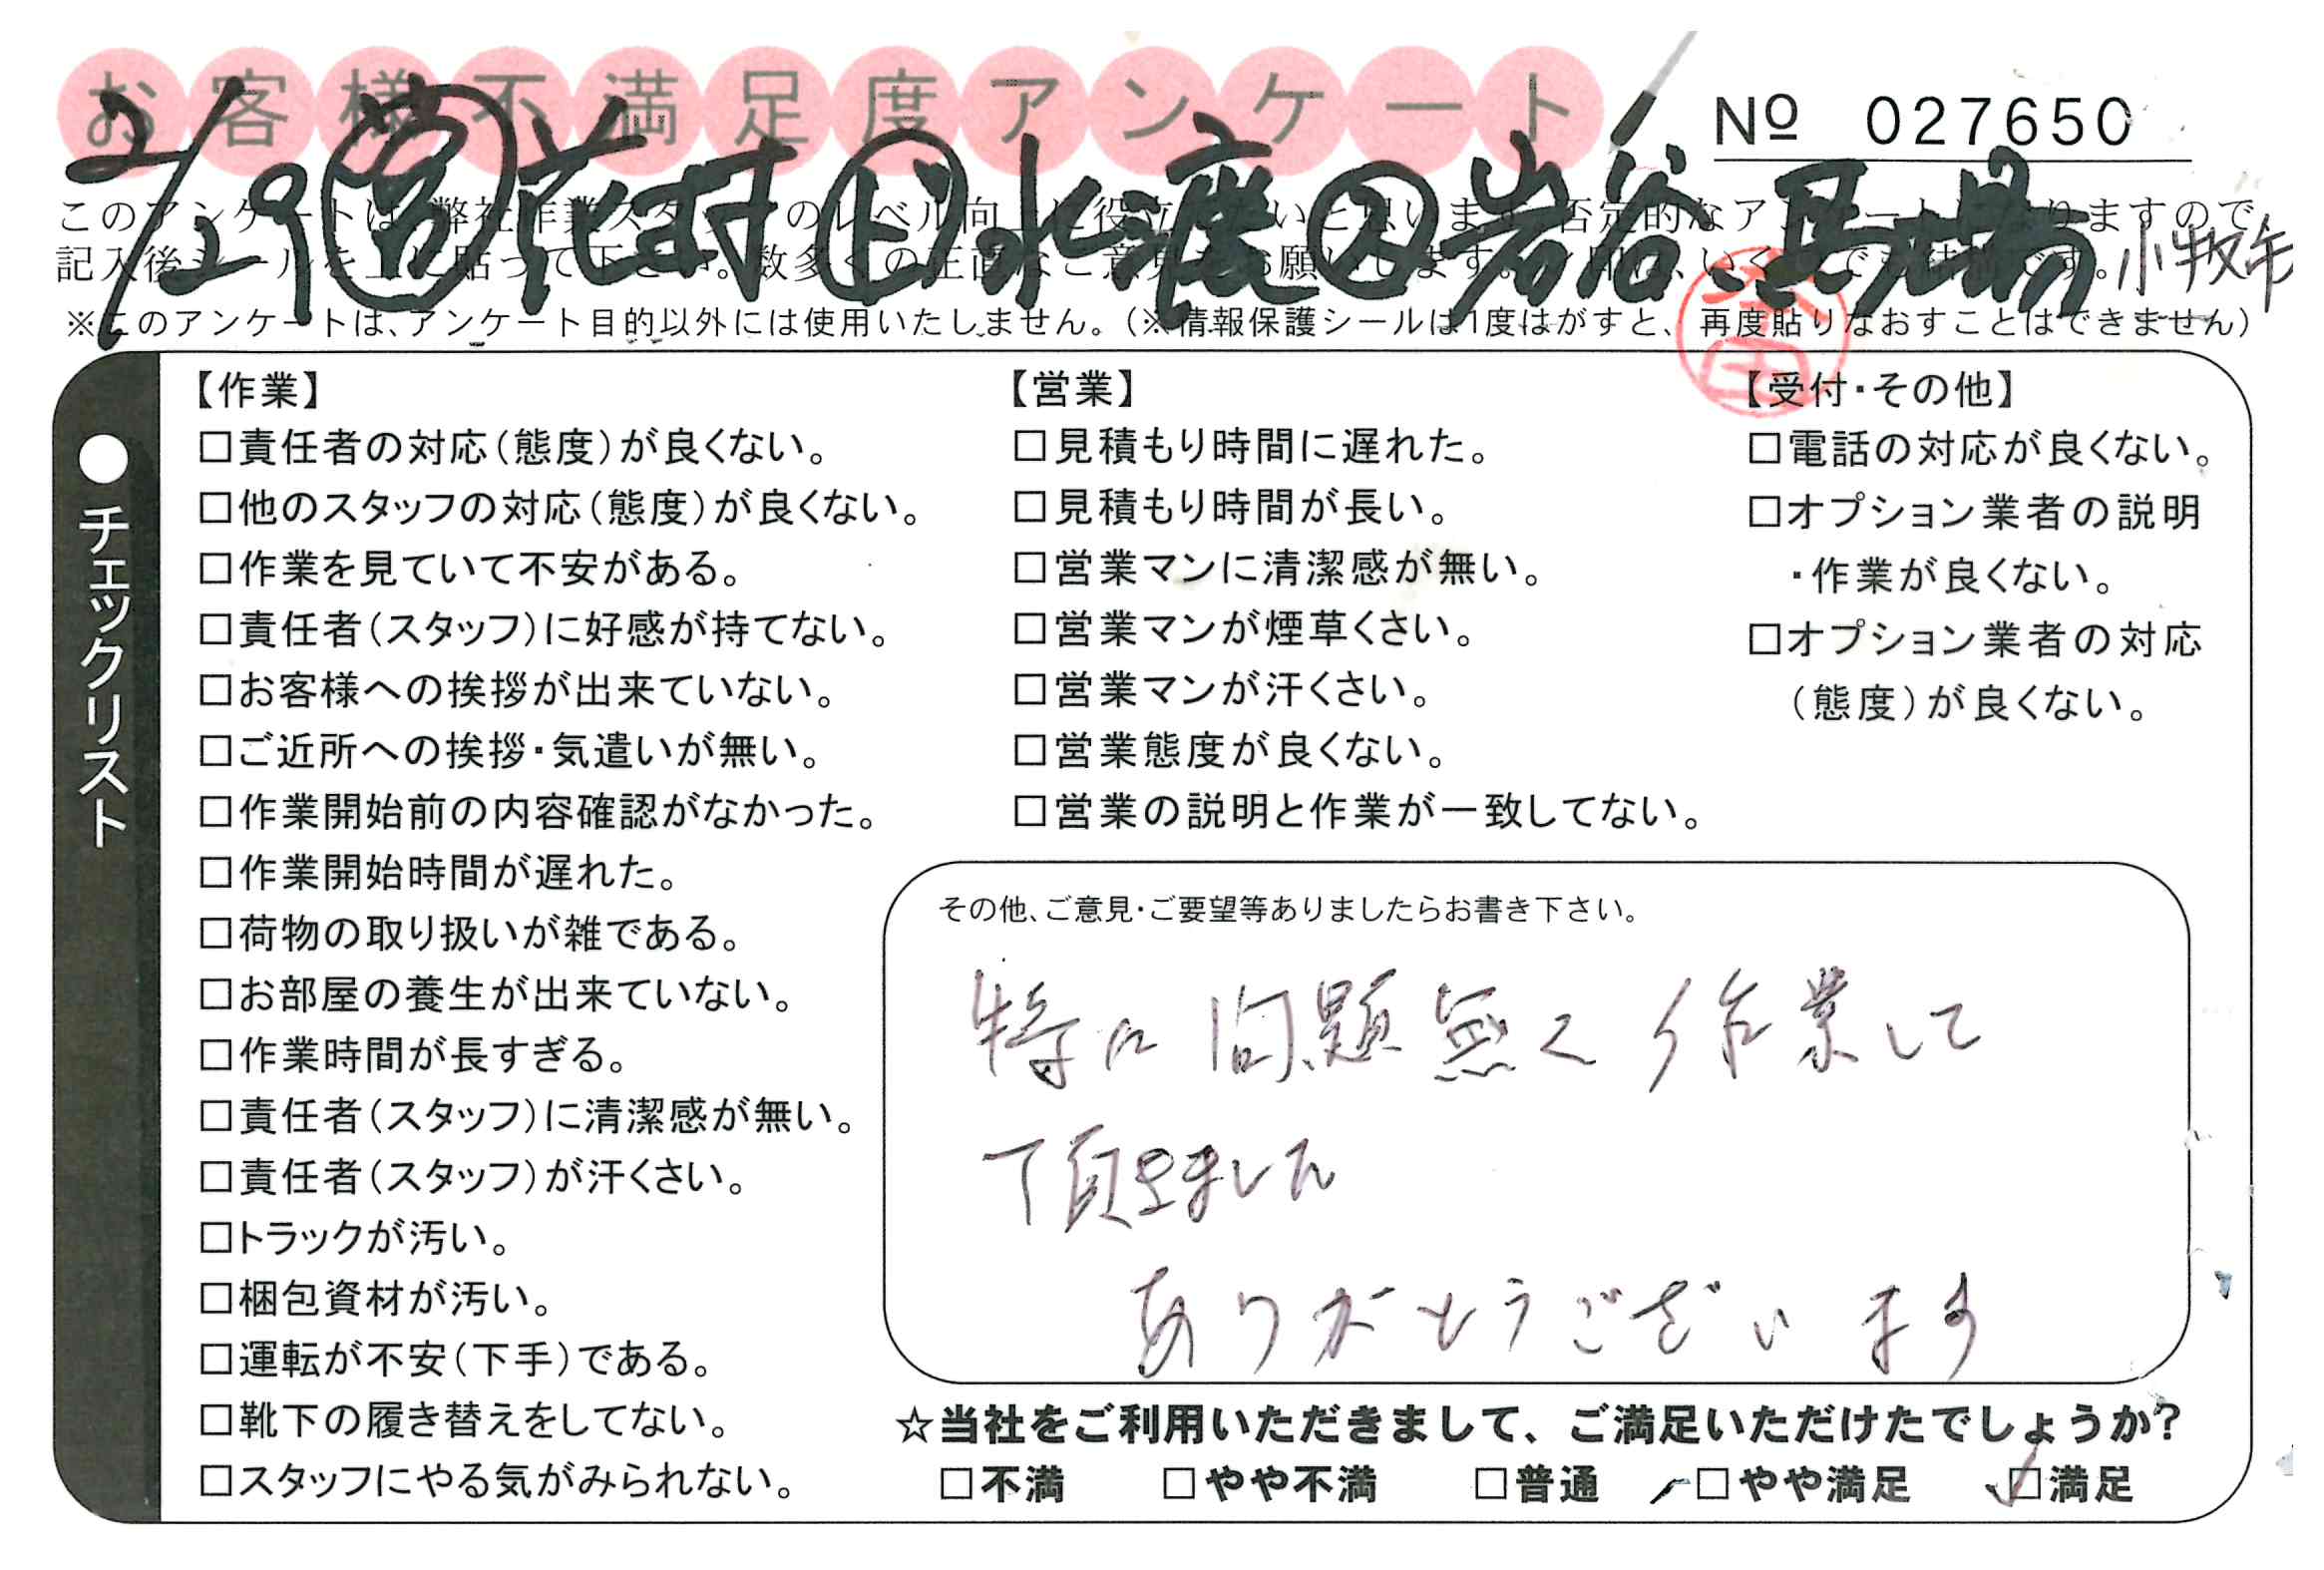 お客様不満足度アンケート
№ 027650
2/29 営 花村 ド 水渡 ス 岩谷 馬場
小牧市
※このアンケートは、アンケート目的以外には使用いたしません。（※情報保護シールは1度はがすと、再度貼りなおすことはできません）
●チェックリスト
【作業】
□責任者の対応（態度）が良くない。
□他のスタッフの対応（態度）が良くない。
□作業を見ていて不安がある。
□責任者（スタッフ）に好感が持てない。
□お客様への挨拶が出来ていない。
□ご近所への挨拶・気遣いが無い。
□作業開始前の内容確認がなかった。
□作業開始時間が遅れた。
□荷物の取り扱いが雑である。
□お部屋の養生が出来ていない。
□作業時間が長すぎる。
□責任者（スタッフ）に清潔感が無い。
□責任者（スタッフ）が汗くさい。
□トラックが汚い。
□梱包資材が汚い。
□運転が不安（下手）である。
□靴下の履き替えをしてない。
□スタッフにやる気がみられない。
【営業】
□見積もり時間に遅れた。
□見積もり時間が長い。
□営業マンに清潔感が無い。
□営業マンが煙草くさい。
□営業マンが汗くさい。
□営業態度が良くない。
□営業の説明と作業が一致してない。
【受付・その他】
□電話の対応が良くない。
□オプション業者の説明
・作業が良くない。
□オプション業者の対応
（態度）が良くない。
その他、ご意見・ご要望等ありましたらお書き下さい。
特に問題無く作業して
頂きました
ありがとうございます
☆当社をご利用いただきまして、ご満足いただけたでしょうか？
□不満 □やや不満 □普通 □やや満足 ☑満足